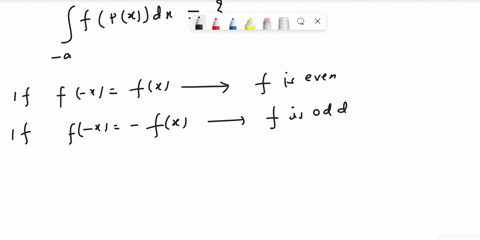 ∫ f(P(x)) dx = ?
-a
If f(-x) = f(x) ⟶ f is even
If f(-x) = - f(x) ⟶ f is odd